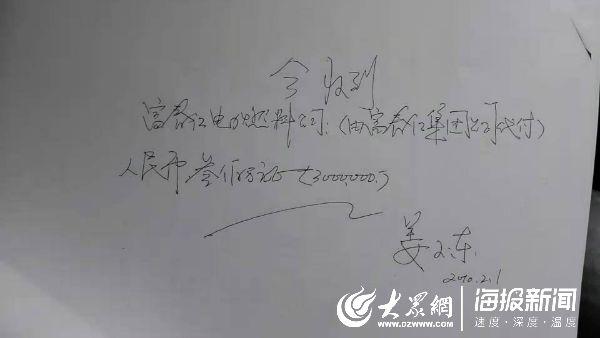 今收到
富春江电力燃料公司:(由富春江集团公司代付)
人民币叁佰万元(3000,000.)
姜东
2010.2.1
大众網
www.dzwww.com
海报新闻
速度·深度·温度